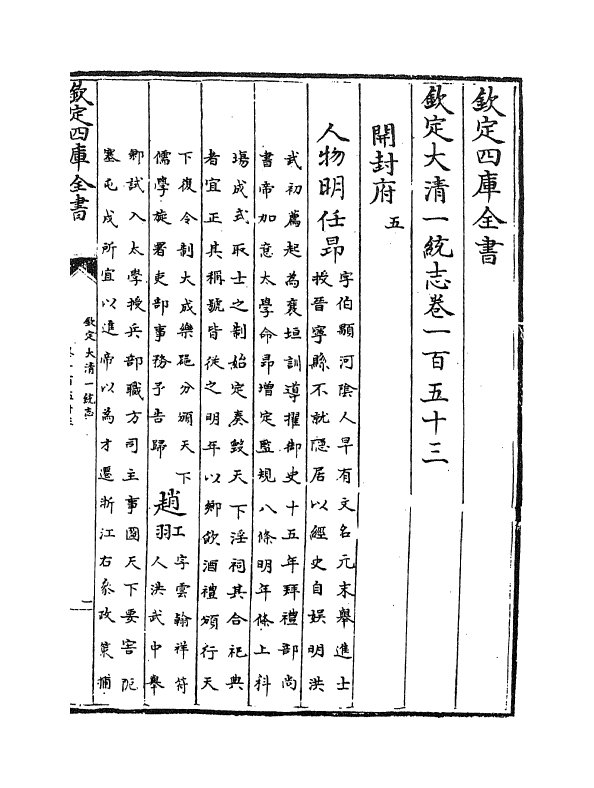 欽定四庫全書
欽定大清一統志卷一百五十三
開封府五
人物明任昂字伯顒河陰人早有文名元末舉進士
授晉寧縣不就隱居以經史自娛明洪
武初薦起為襄垣訓導擢御史十五年拜禮部尚
書帝加意太學命昂增定監規八條明年條上科
塲成式取士之制始定奏毀天下淫祠其合祀典
者宜正其稱號皆從之明年以鄉飲酒禮頒行天
下復令制大成樂器分頒天下
儒學旋署吏部事務予告歸
趙羾字雲翰祥符
人洪武中舉
鄉試入太學授兵部職方司主事圖天下要害阨
塞屯戍所宜以進帝以為才遷浙江右參政策捕
欽定四庫全書
欽定大清一統志
卷一百五十三
一